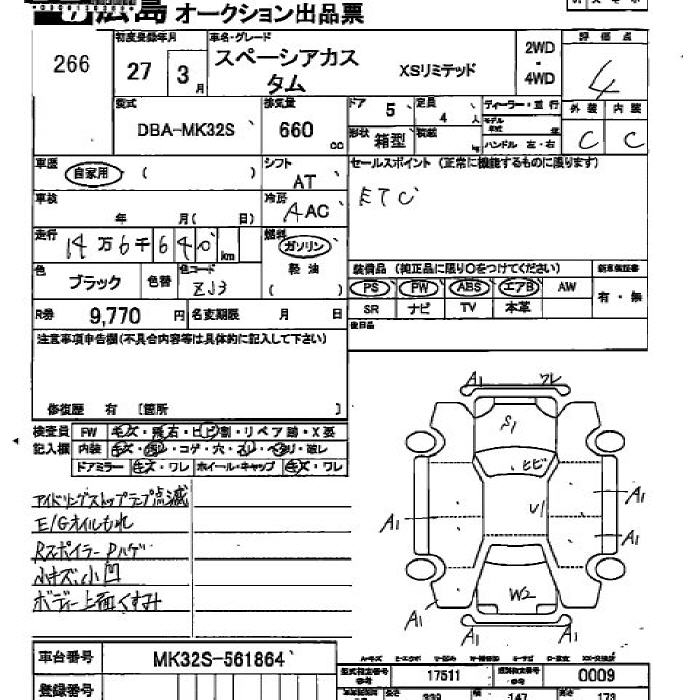 広島 オークション出品票
266
初度登録年月
27 3 月
車名・グレード
スペーシアカス
タム
XSリミテッド
2WD
・
4WD
評価点
4
外装 内装
C C
型式
DBA-MK32S
排気量
660 cc
ドア 5
定員 4 人
形状 箱型
積載 kg
ディーラー・並行
モデル年式 年
ハンドル 左・右
車歴 自家用 ( )
シフト
AT
セールスポイント (正常に機能するものに限ります)
ETC
車検
年 月( 日)
冷房
AAC
走行
14万6千640 km
燃料
ガソリン
軽油
( )
色
ブラック
色替
色コード
ZJ3
装備品 (純正品に限り○をつけてください)
新車保証書
PS PW ABS エアB AW
有・無
SR ナビ TV 本革
R券 9,770 円
名変期限 月 日
後日品
注意事項申告欄(不具合内容等は具体的に記入して下さい)
修復歴 有 [箇所 ]
検査員
記入欄
FW キズ・飛石・ヒビ割・リペア跡・X要
内装 キズ・汚レ・コゲ・穴・スレ・ベタリ・破レ
ドアミラー キズ・ワレ ホイール・キャップ キズ・ワレ
アイドリングストップランプ点滅
E/Gオイルもれ
RスポイラーPハゲ
小キズ・小凹
ボディー上面くすみ
A1 ワレ
S1
ヒビ
U1
A1
A1
A1
W2
A1
A1 A1
車台番号 MK32S-561864
登録番号
型式指定番号 17511
類別区分番号 0009
長さ 339
幅 147
高さ 173